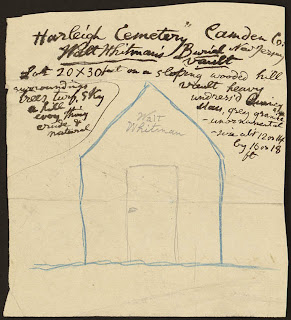 "Harleigh Cemetery" Camden Co.
New Jersey
Walt Whitman's Burial
vault
Lot 20 X 30 feet on a sloping wooded hill
surroundings
trees, turf, sky
a hill
every thing
crude &
natural
vault heavy
undress'd Quincy
grey granite
- unornamental
- size abt 12 or 14
by 16 or 18
ft
Walt
Whitman